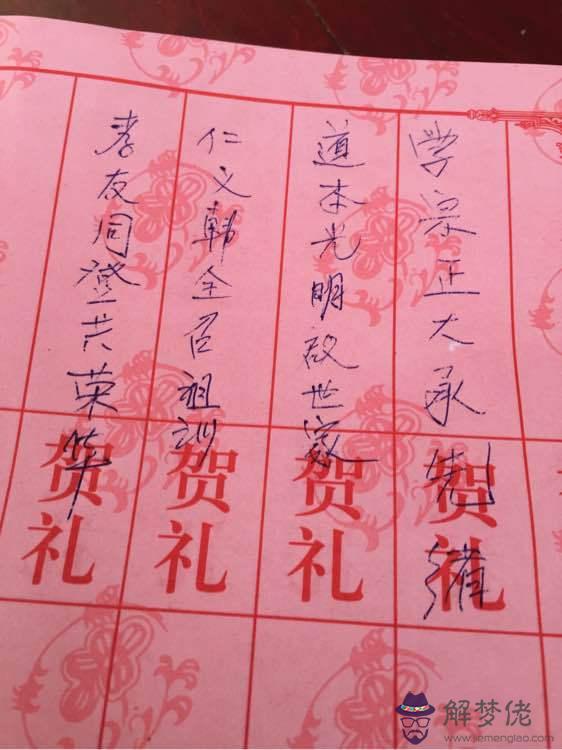 学宗正大承先绪
道本光明啟世家
仁义韩全召祖训
孝友同登共荣华
贺礼
贺礼
贺礼
贺礼
解梦佬
www.jiemenglao.com